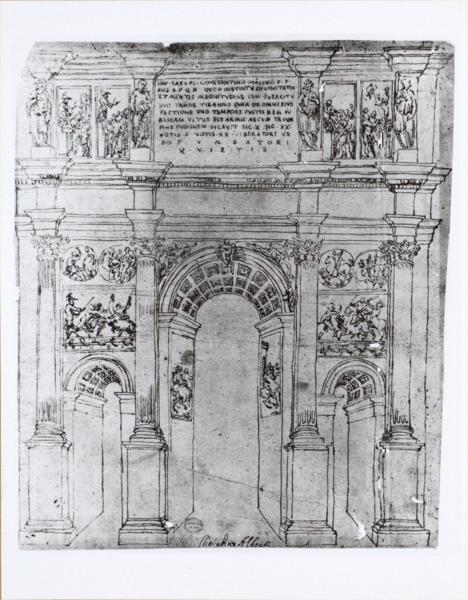 IMP · CAESAR · CONSTANTINO MAXIMO P F
AVG S P Q R QVOD INSTINTV DIVINITATIS
ET MENTIS MAGNITVDINE CVM EXERCITV
SVO TANDE TIRANNO QVAM DE OMNI EIVS
FACTIONE VNO TEMPORE IVSTIS REM PV
BLICAM VLTVS EST ARMIS ARCVM TRIVM
PHIS INSIGNEM DICAVIT SIC · X · SIC · XX
VOTIS · X · VOTIS · XX · LIBERATORI VR
BIS F V N D A T O R I
Q V I E T I S
Alberti